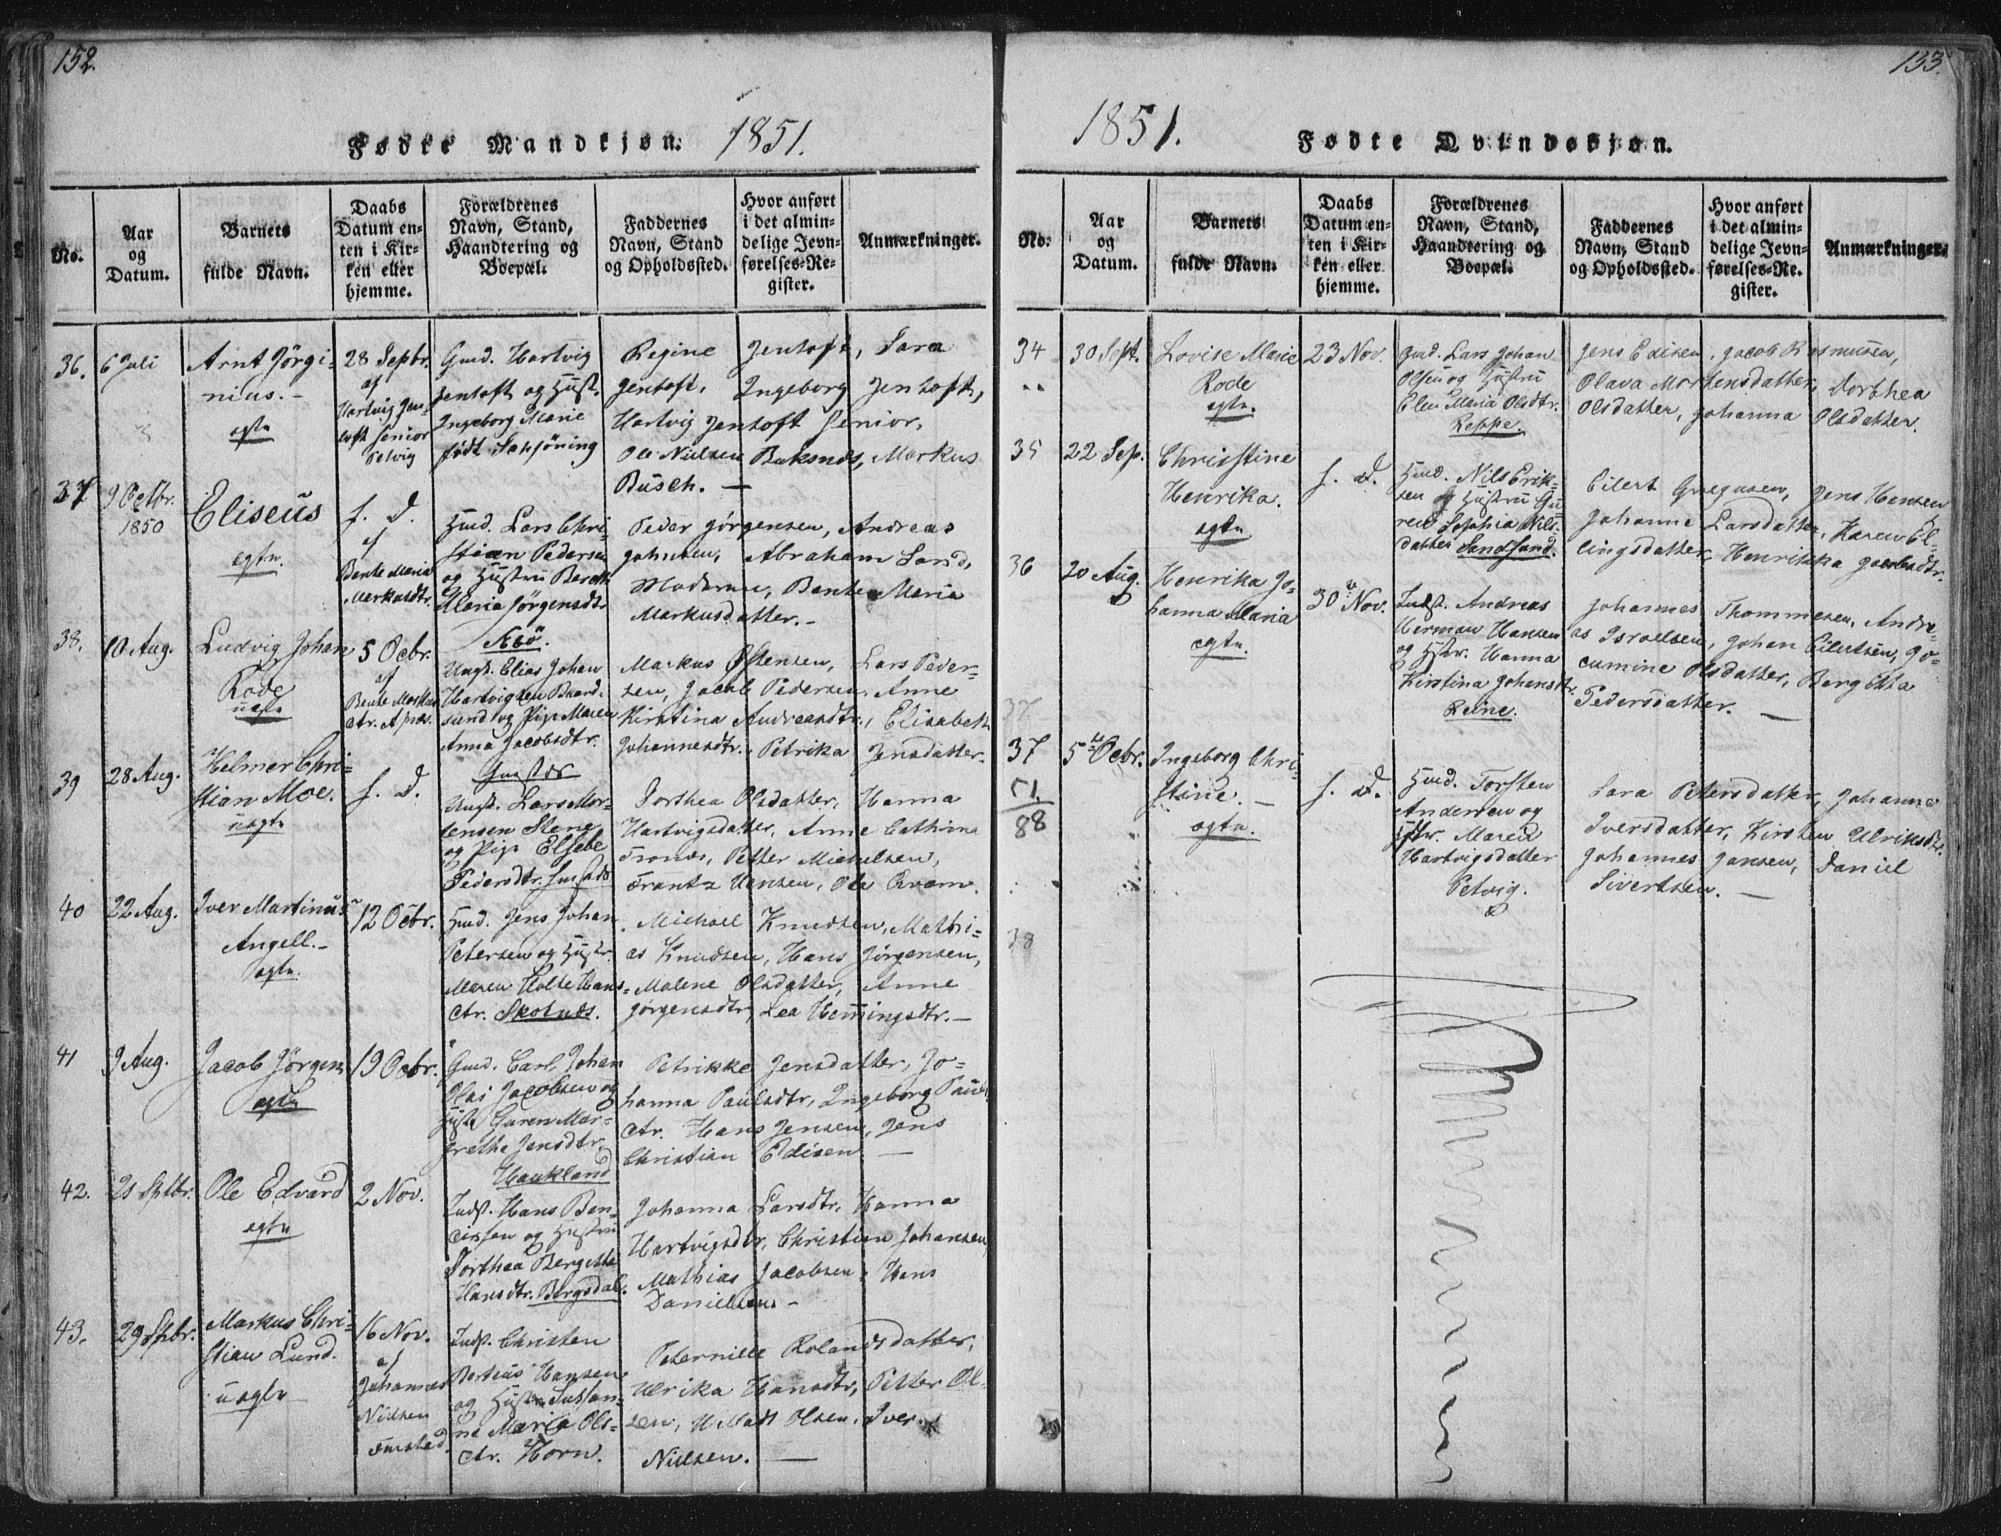 152.
Fødte Mandkjøn. 1851.
No.
Aar og Datum.
Barnets fulde Navn.
Daabs Datum enten i Kirken eller hjemme.
Forældrenes Navn, Stand, Haandtering og Boepæl.
Faddernes Navn, Stand og Opholdssted.
Hvor anført i det almindelige Jevnførelses-Register.
Anmærkninger.
36.
6 Juli
Arnt Jørgi-
nius. -
egte
28 Sepbr.
af
Hartvig Jen-
toft Senior
Petvig
Gmd. Hartvig
Jentoft og Hust.
Ingeborg Marie
født
Regine Jentoft, Sara
Jentoft, Ingeborg Jentoft,
Hartvig Jentoft Senior,
Ole Nielsen Buksnæs, Markus
Busch. —
37
9 Octbr.
1850
Eliseus
egte.
s. D.
af
Bente Maria
Markusdtr.
Hmd. Lars Chri-
stian Pedersen
og Hustru Bereth
Maria Jørgensdtr
Peder Jørgensen, Andreas
Johnsen, Abraham Lund,
Moderen, Bente Maria
Markusdatter. -
38.
10 Aug.
Ludvig Johan
Rode
uegte
5 Ocbr.
af
Bente Markus
dtr.
Ungk. Elias Johan
Hartvigsen
og Pige Maren
Anna Jacobsdtr.
Markus Østensen, Lars Peder-
sen, Jacob Pedersen, Anne
Kirstina Andreasdtr., Elisabeth
Johannesdtr., Petrika Jensdatter.
39
28 Aug.
Helmer Chri-
stian Moe.
uegte
s. D.
Ungk. Lars Mor-
tensen Stene
og Pige Elsebe
Pedersdtr.
Dorthea Olsdatter, Hanna
Hartvigsdatter, Anne Cathrine
Petter Michelsen,
Frantz Hansen, Ole Qvam.
40
22 Aug.
Iver Martinus
Angell. -
egte.
12 Ocbr.
Hmd. Jens Johan
Petersen og Hustr.
Maren Holte Hans-
dtr. Skotnæs.
Michael Knudsen, Mathi-
as Knudsen, Hans Jørgensen,
Malene Olsdatter, Anne
Jørgensdtr, Lea Hemingsdtr. —
41
9 Aug.
Jacob Jørgen
egte
19 Ocbr.
Gmd. Carl Johan
Olai Jacobsen og
Hustr. Garen Mar-
grethe Jensdtr.
Haukland
Petrikke Jensdatter, Jo-
hanna Paulsdtr, Ingeborg Pauls
dtr. Hans Jensen, Jens
Christian Edisen —
42.
21 Septbr.
Ole Edvard
egte
2 Nov.
Indst. Hans Ben-
og Hustru
Dorthea Bergitte
Hansdtr. Bergsdal.
Johanna Larsdtr, Hanna
Hartvigsdtr, Christian Johansen
Mathias Jacobsen, Hans
Danielsen. -
43.
29 Spbr.
Markus Chri-
stian Lund.
uegte
16 Nov.
af
Johannes
Nielsen
Indst. Christen
Berteus Hansen
og Hustru Sussan-
ne Maria Ols-
dtr. Horn.
Peternille Rolandsdatter,
Ulrika Hansdtr, Petter Ol-
sen, Olsen, Iver
Nielsen. —
133.
1851. Fødte Qvindekjøn.
No.
Aar og Datum.
Barnets fulde Navn.
Daabs Datum enten i Kirken eller hjemme.
Forældrenes Navn, Stand, Haandtering og Boepæl.
Faddernes Navn, Stand og Opholdssted.
Hvor anført i det almindelige Jevnførelses-Register.
Anmærkninger.
34
30 Sept.
Lovise Marie
Rode
egte.
23 Nov.
Gmd. Lars Johan
Olsen og Hustru
Elen Maria Olsdtr.
Reppe.
Jens Edisen, Jacob Rasmusen,
Olava Mortensdatter, Dorthea
Olsdatter, Johanna Olsdatter.
35
22 Sep.
Christine
Henrika.
egte
s. D.
Hmd. Nils Erik-
sen og Hustru Gu-
ren Sophia Nils-
datter Sandsund.
Eilert Gregusen, Jens Hansen
Johanna Larsdatter, Karen El-
lingsdatter, Henrikka Jacobsdtr.
36
20 Aug.
Henrika Jo-
hanna Maria
egte.
30te Nov.
Indst. Andreas
Herman Hansen
og Hustr. Hanna
Kirstina Johansdtr.
Leine.
Johannes Thommesen, Andre-
as Israelsen, Johan Eilertsen, Jo-
cumine Olsdatter, Bergitta
Pedersdatter. —
37
37
5te Ocbr.
Ingeborg Chri-
stine. —
egte.
s. D.
Hmd. Torsten
Andersen og
Hustr. Maren
Hartvigsdatter
Petvig.
Sara Petersdatter, Johanna
Iversdatter, Kirsten Ulriksdtr.
Johannes Jansen, Daniel
Sivertsen. —
51
88
38